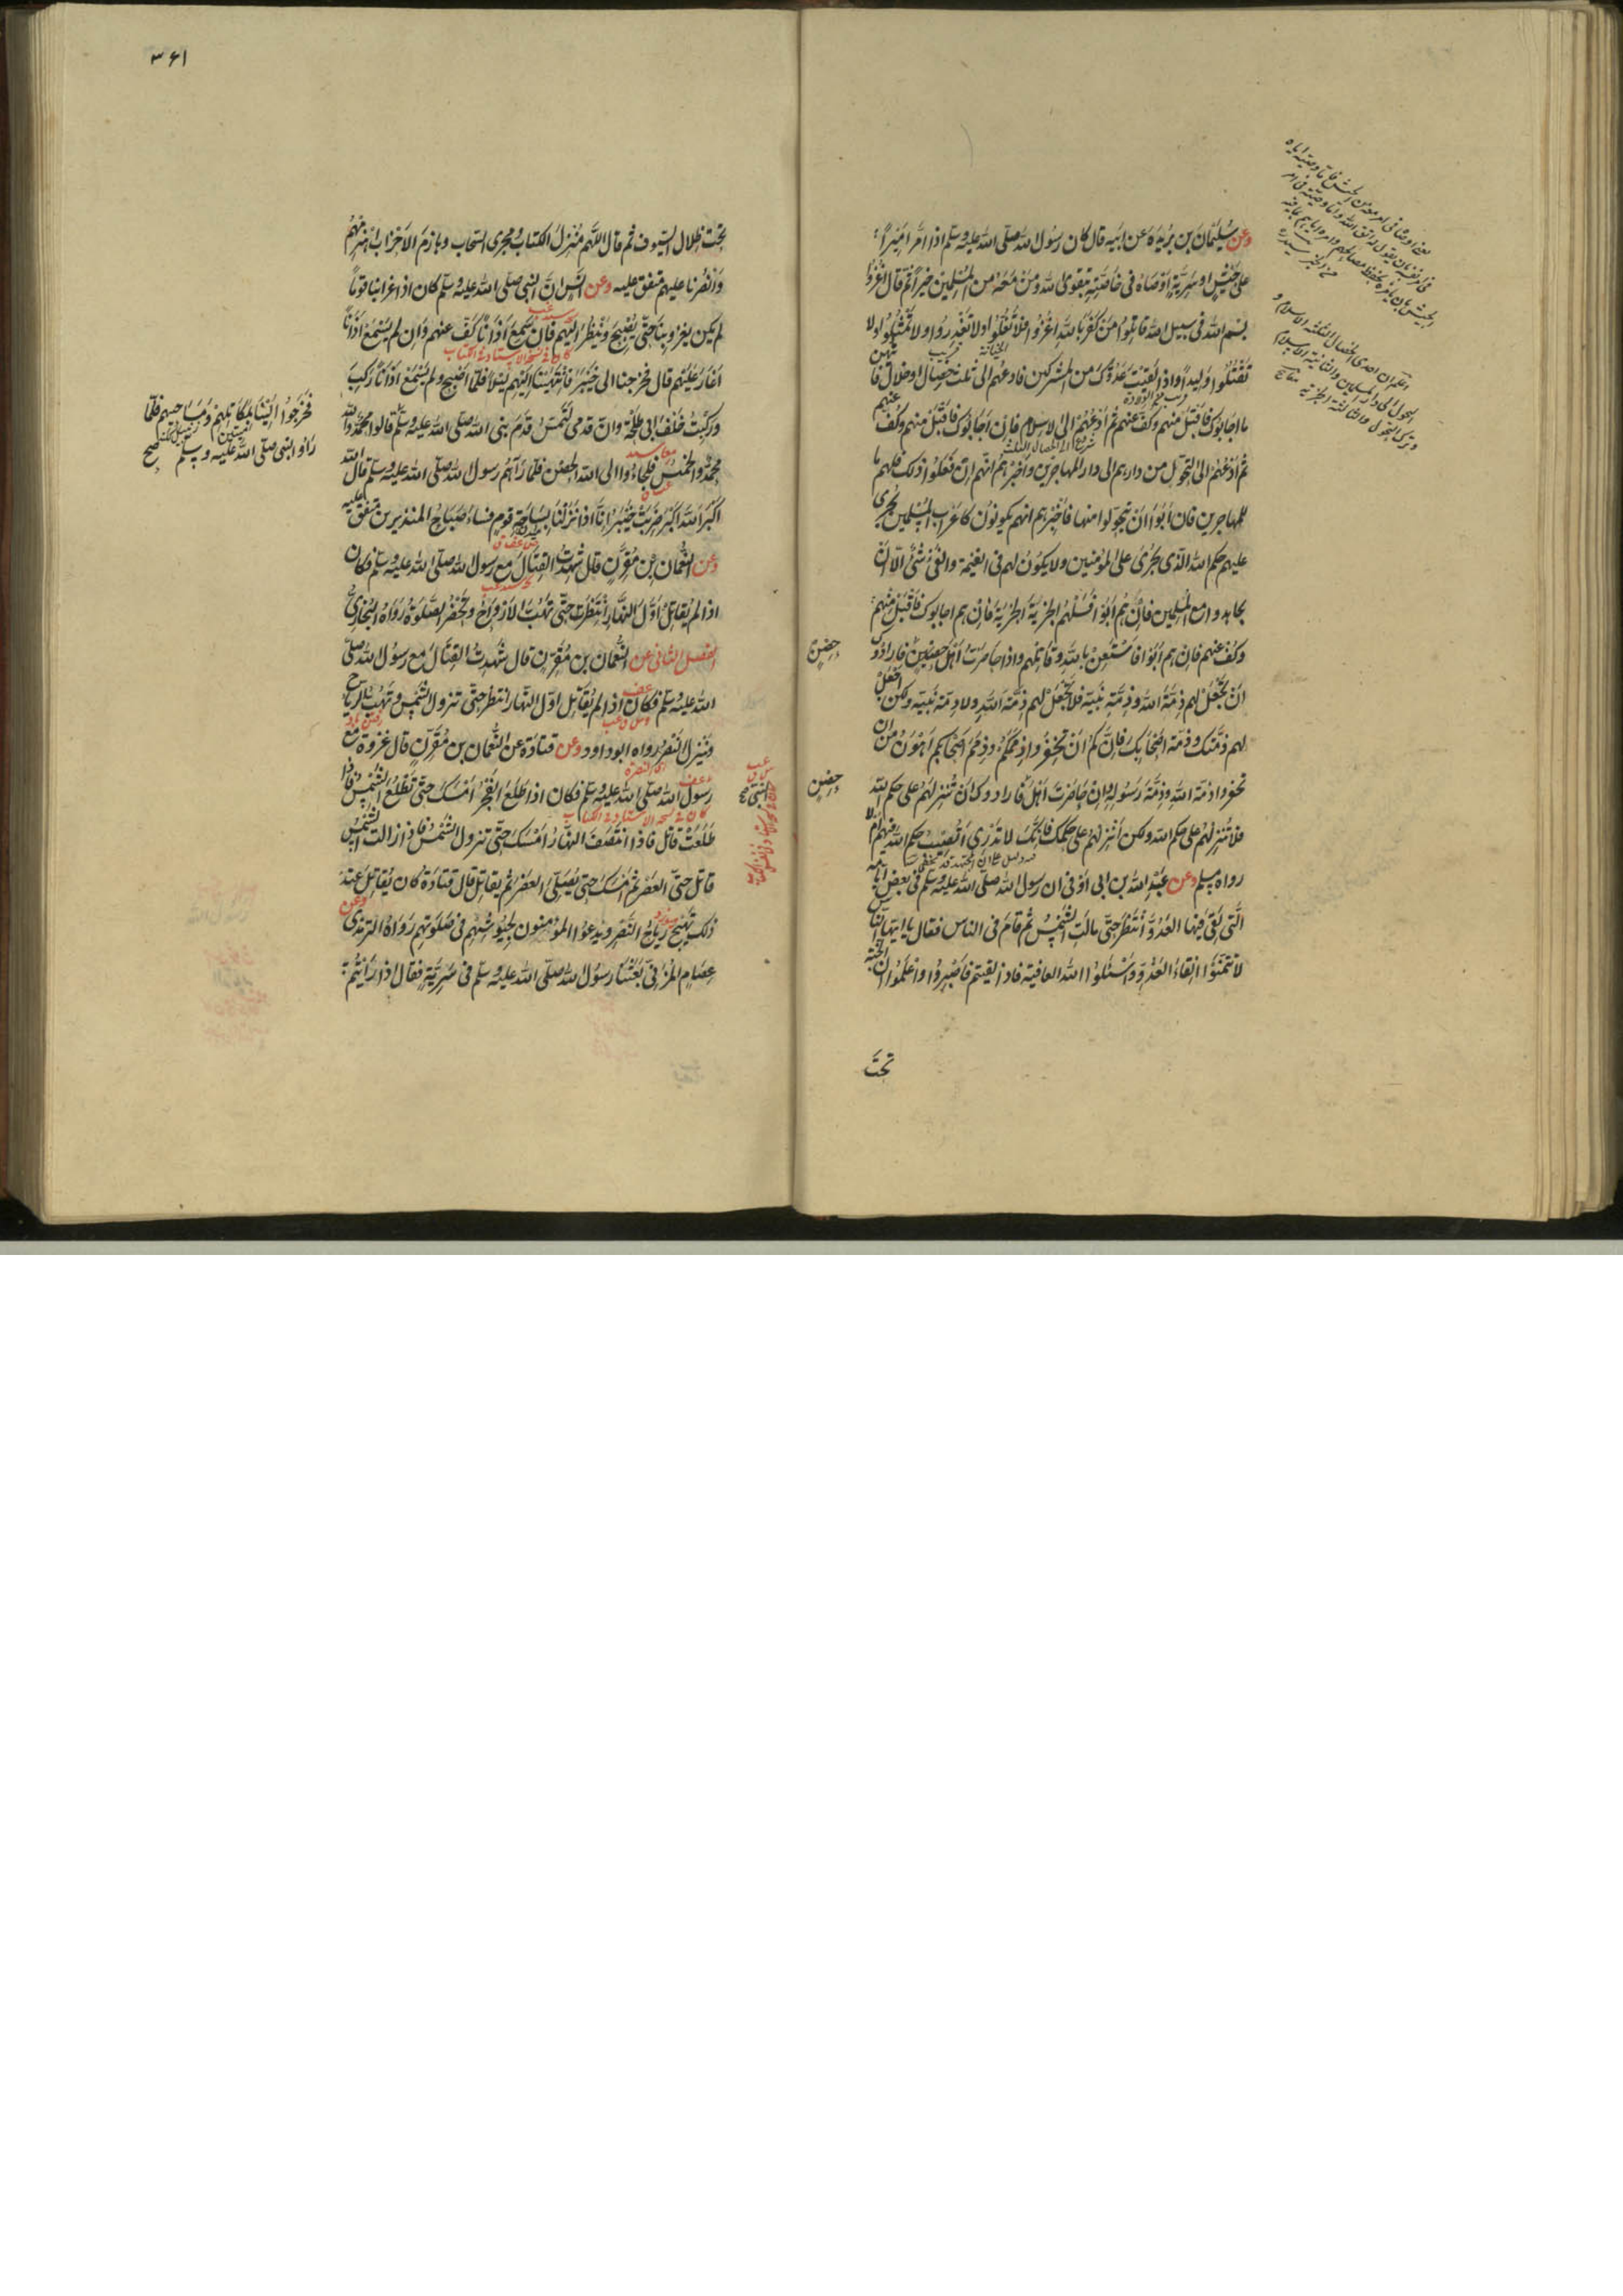 وعن سُلَيْمَانَ بن بُرَيْدَةَ عَن ابيه قال كان رسُول الله صلّى الله عليه وسلم اذا امَّرَ امِيْرًا
على جَيْشٍ او سَرِيَّةٍ اَوْصَاهُ فى خاصّتِهٖ بتقوى الله ومَنْ مَعَهٗ من المُسْلمين خيراً ثم قال اُغْزُوا
بِسْم الله فى سبيل الله قَاتِلُوْا مَنْ كفَرَ بالله اُغْزُوا فلا تَغُلُّوْا ولا تَغْدِرُوا ولا تَمْثُلُوْا ولا
تَقْتُلُوْا وَلِيداً واذا لَقِيْتَ عَدُوَّكَ من المشركين فادعهم الى ثلث خِصَالٍ او خلالٍ فا
ما اجَابُوكَ فاقْبَلْ منهم وكُفَّ عنهم ثم اُدْعُهُمْ الى الاسلام فاِنْ اَجَابُوْكَ فاقْبَلْ منهم وكُفّ عنهم
ثم اُدْعُهُمْ الى التحَوّل من دارهم الى دار المهاجرين وَاَخْبِرْهُمْ انّهم اِنْ فَعَلُوْا ذلك فلهم ما
للمهاجرين فان اَبَوْا اَنْ يتحَوّلوا منها فاَخْبِرهم انهم يكونُوْن كاَعْرَابِ المُسْلمين يُجْرى
عليهم حكم الله الّذى يجْرى على المؤمنين ولا يكُوْن لهم فى الغنيمة والفَىْءِ شَىْءٌ الّا اَنْ
يجاهدوا مع المسلمين فاِنْ هُم اَبَوْا فَسَلْهُم الجزْيَةَ فاِنْ هم اجابوك فاقْبَلْ منهم
وكُفّ عنهم فاِنْ هم اَبَوْا فاسْتَعِنْ بالله وقاتِلْهم واذا حاصَرْتَ اَهْلَ حِصْنٍ فارادُوْكَ
اَنْ تَجْعَلَ لهم ذِمَّةَ الله وذِمَّةَ نَبِيّهٖ فلا تَجْعَلْ لهم ذِمّةَ الله ولا ذمّةَ نَبِيّهٖ ولكن اجْعَلْ
لهم ذمّتك وذمّة اَصْحَابِكَ فاِنَّكُمْ اَنْ تُخْفِرُوا ذِمَمَكُمْ وذِمَمَ اَصْحَابكم اَهْوَنُ مِنْ ان
تخفروا ذمّةَ الله وذِمّةَ رَسُوْلِهٖ وان حَاصَرْتَ اَهْلَ فارادوك اَنْ تُنْزِلَهُمْ على حكم الله
فلا تُنْزِلْهُمْ على حكم الله ولكن اَنْزِلْهُمْ على حكمك فاِنّكَ لا تدْرِىْ اَتُصِيْبُ حكم الله فيهم ام لا
رواه مسلم وعن عَبْدِ الله بن ابى اَوْفى ان رسول الله صلى الله عليه وسلم فى بعض ايامه
الَّتى لَقِىَ فيها العَدُوَّ انْتَظَرَ حتّى مالَتِ الشَّمْسُ ثم قامَ فى الناس فقال يا ايها النّاس
لا تتمَنَّوْا لِقَاءَ العَدُوِّ واسْئَلُوْا الله العافية فاذا لقيتم فاصْبِرُوْا واعْلَمُوْا ان الجنّة
حِصْنٍ
حِصْنٍ
تَحْتَ
٣٦١
تحْتَ ظِلال السّيُوف ثم قال اللّهمّ مُنْزِلَ الكتَابِ ومُجْرِى السّحاب وهازمَ الاَحْزَابِ اهْزِمْهُمْ
وَانْصُرْنَا عليهم متفق عليه وعن اَنَسٍ انّ النبى صلى الله عليه وسلم كان اذا غزا بنا قوماً
لم يكن يغزو بنا حتّى يُصْبِحَ ويَنْظُرَ اِلَيهم فاِن سَمِعَ اَذَاناً كَفَّ عنهم واِن لم يَسْمَعْ اَذَاناً
اَغَارَ عَلَيْهم قال فخرجنا الى خَيْبَرَ فانْتَهَيْنَا اِلَيْهم ليلاً فلمّا اَصْبَحَ ولم يَسْمَعْ اَذَاناً رَكِبَ
ورَكِبْتُ خَلْفَ ابى طَلْحَةَ وانّ قدمى لَتَمَسُّ قَدَمَ نبى الله صلى الله عليه وسلم قالوا محمّدٌ والله
محمّدٌ والخميسُ فلجَاءُوا الى الحِصْن فلمّا رَآهُم رسول الله صلى الله عليه وسلم قال الله
اكبَرُ اللهُ اَكْبَرُ خَرِبَتْ خَيْبَرُ اِنّا اذا نزلْنَا بسَاحَةِ قومٍ فسَاءَ صَبَاحُ المنذرين متفق عليه
وعن النُّعْمان بْنِ مُقَرِّنٍ قال شهِدتُ القِتالَ مع رسول الله صلى الله عليه وسلم فكان
اذا لم يُقاتِلْ اَوّلَ النّهارِ انْتَظَرَ حتّى تَهُبَّ الاَرْوَاحُ وتَحْضُرَ الصَّلٰوةُ رَوَاهُ البُخَارِىُّ
الفصل الثانى عن النُّعْمَان بن مُقَرِّنٍ قال شَهِدتُ القِتَالَ مع رسُول الله صلى
الله عليه وسلم فكان اذا لم يُقاتِلْ اوّل النّهار انتظر حتّى تزول الشّمْس وتهُبّ الرياح
ويَنْزِلَ النَّصْرُ رواه ابوداود وعن قتادة عن النُّعْمان بن مُقَرِّنٍ قال غزوتُ مع
رسول الله صلى الله عليه وسلم فكان اذا طلَعَ الفَجْرُ اَمْسَكَ حتّى تطْلُعَ الشَّمْسُ فاذا
طَلَعَتْ قاتل فاذا انتَصَفَ النهارُ اَمْسَكَ حتّى تزول الشّمْسُ فاذا زالت الشّمْسُ
قاتل حتّى العَصْرِ ثم اَمْسَكَ حتى يُصَلّىَ العَصْرَ ثم يقاتل قال قتادة كان يُقالُ عِنْدَ
ذلك تَهِيْجُ رِيَاحُ النَّصْرِ ويدعُوا المؤمنون لِجُيُوْشِهِمْ فى صَلٰوتِهم رَوَاهُ الترمذى وعن
عِصَامٍ المُزَنِىّ بَعَثَنَا رسُول الله صلى الله عليه وسلم فى سَرِيَّةٍ فقال اذا رَاَيْتُمْ
فَخَرَجُوْا اِلَيْنَا بمَكَاتِلِهِمْ ومَسَاحِيهم فلمّا
رَأوا النبى صلى الله عليه وسلم صح